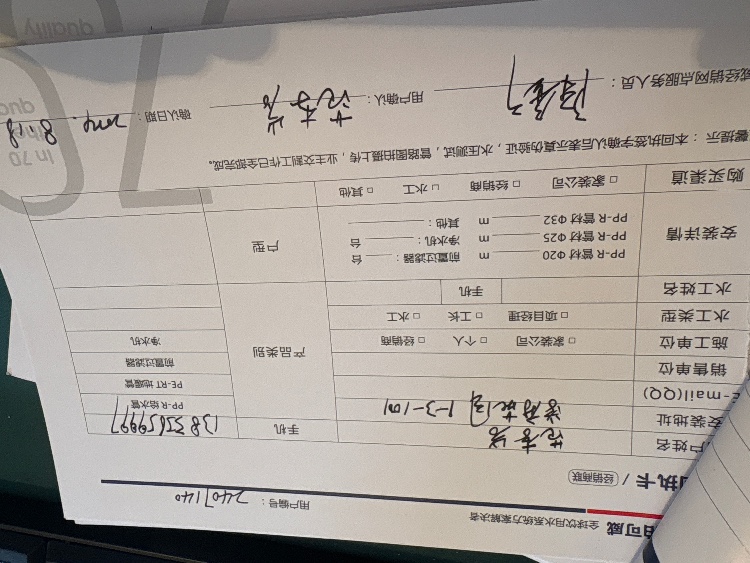 可威 全球饮用水系统方案解决者
用户编号：2407140
执卡 / 经销商联
户姓名
手机 13833659997
装地址 1-3-1001
E-mail(QQ)
销售单位
产品类别
PP-R 给水管
PE-RT 地暖管
前置过滤器
净水机
施工单位 □ 家装公司 □ 个人 □ 经销商
水工类型 □ 项目经理 □ 工长 □ 水工
水工姓名 手机
安装详情
PP-R 管材 Φ20 m 前置过滤器： 台
PP-R 管材 Φ25 m 净水机： 台
PP-R 管材 Φ32 m 其他：
户型
购买渠道 □ 家装公司 □ 经销商 □ 水工 □ 其他
馨提示：本回执签字确认后表示真伪验证，水压测试，管路图拍摄上传，业主交到工作已全部完成。
或经销网点服务人员：
用户确认：
确认日期： 8.18
quality
in 70